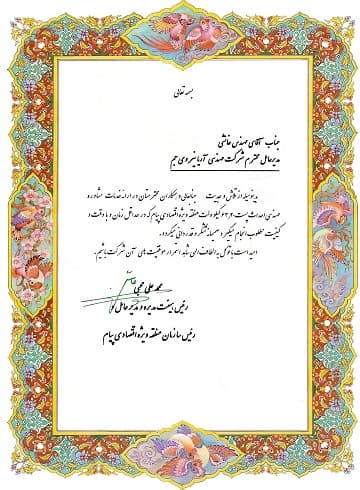 بسمه تعالی
جناب آقای مهندس خانشی
مدیرعامل محترم شرکت مهندسی آریا نیروی جم
بدینوسیله از تلاش و جدیت جنابعالی و همکاران محترمتان در ارائه خدمات مشاوره و
مهندسی احداث پست ۶۳/۲۰ کیلو ولت منطقه ویژه اقتصادی پیام که در حداقل زمان و با دقت و
کیفیت مطلوب انجام میگیرد صمیمانه تشکر و قدردانی میگردد.
امید است با توکل به الطاف الهی شاهد استمرار موفقیت های آن شرکت باشیم.
محمد علی
رئیس هیئت مدیره و مدیر عامل
رئیس سازمان منطقه ویژه اقتصادی پیام